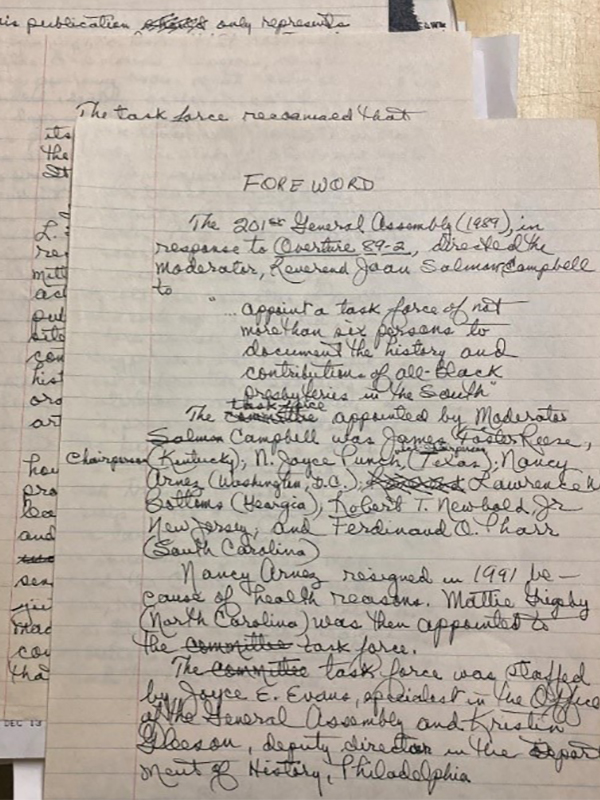 is publication only represents
The task force recognised that
its
the
St
L.
re
mit
act
pub
site
con
hist
org
art
hou
pro
ba
and
sen
jui
mad
cou
tha
DEC 13
FOREWORD
The 201st General Assembly (1989), in
response to Overture 89-2, directed the
Moderator, Reverend Joan Salmon Campbell
to
"... appoint a task force of not
more than six persons to
document the history and
contributions of all-Black
presbyteries in the South"
task force
The committee appointed by Moderator
Salmon Campbell was James Foster Reese,
Chairperson (Kentucky); N. Joyce Punch, (Texas); Nancy
Arnez (Washington, D.C.); Lawrence W.
Bottoms (Georgia); Robert T. Newbold, Jr
New Jersey; and Ferdinand O. Pharr
(South Carolina)
Nancy Arnez resigned in 1991 be-
cause of health reasons. Mattie Grigsby
(North Carolina) was then appointed to
the committee task force.
The committee task force was staffed
by Joyce E. Evans, specialist in the Office
of the General Assembly and Kristin
Gleeson, deputy director in the Depart
ment of History, Philadelphia